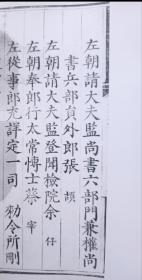 左朝請大夫監尚書六部門兼權尚
書兵部員外郎張　頡
左朝請大夫監登聞檢院余　仔
左朝奉郎行太常博士蔡　宰
左從事郎充詳定一司　勑令所刪